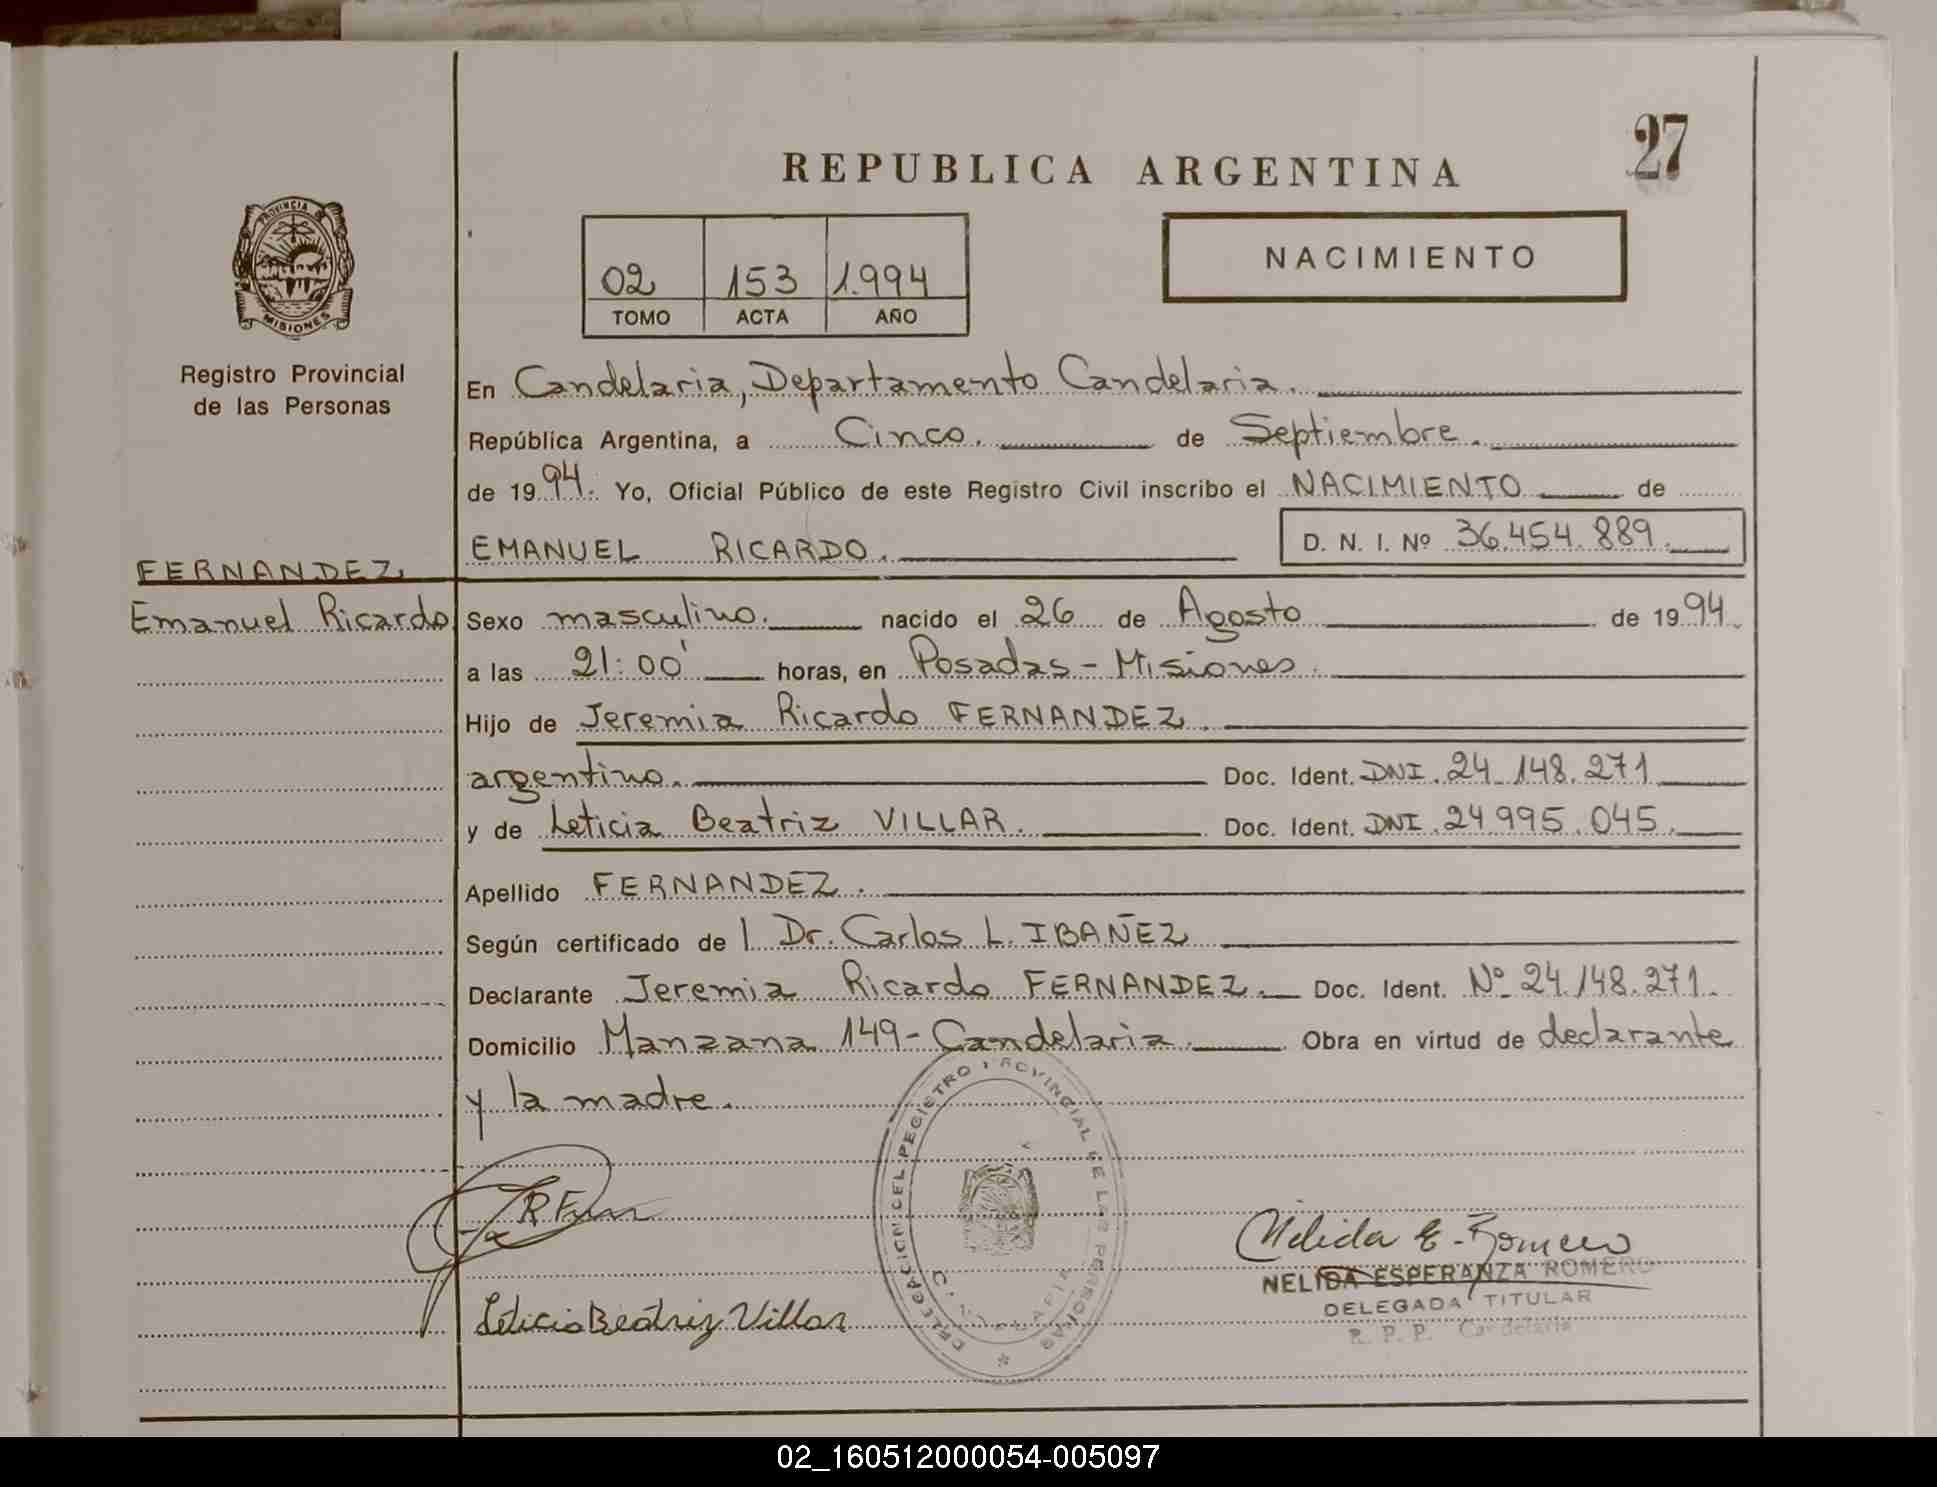 27
REPUBLICA ARGENTINA
PROVINCIA DE
MISIONES
Registro Provincial
de las Personas
02 153 1.994
TOMO ACTA AÑO
NACIMIENTO
En Candelaria, Departamento Candelaria.
República Argentina, a Cinco. de Septiembre.
de 1994. Yo, Oficial Público de este Registro Civil inscribo el NACIMIENTO de
EMANUEL RICARDO. D. N. I. Nº 36.454.889.
FERNANDEZ
Emanuel Ricardo
Sexo masculino. nacido el 26 de Agosto de 1994.
a las 21:00' horas, en Posadas - Misiones.
Hijo de Jeremia Ricardo FERNANDEZ.
argentino. Doc. Ident. DNI. 24.148.271
y de Leticia Beatriz VILLAR. Doc. Ident. DNI. 24995.045.
Apellido FERNANDEZ.
Según certificado de l Dr. Carlos L. IBAÑEZ
Declarante Jeremia Ricardo FERNANDEZ. Doc. Ident. Nº 24.148.271.
Domicilio Manzana 149 - Candelaria. Obra en virtud de declarante
y la madre.
DELEGACION DEL REGISTRO PROVINCIAL DE LAS PERSONAS
Leticia Beatriz Villar
Nelida E. Romero
NELIDA ESPERANZA ROMERO
DELEGADA TITULAR
R. P. P. Candelaria
02_160512000054-005097